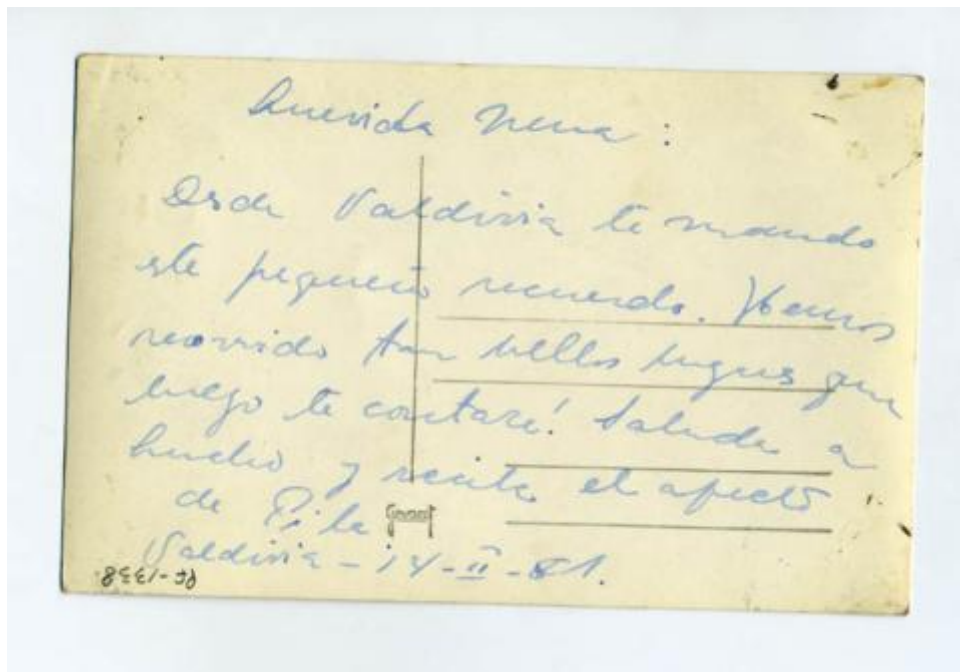 Querida Nena:
Desde Valdivia te mando
este pequeño recuerdo. Hemos
recorrido tan bellos lugares que
luego te contaré! Saluda a
y recibe el afecto
de
Gevaert
Valdivia - 14-II-61.
Pf-1338